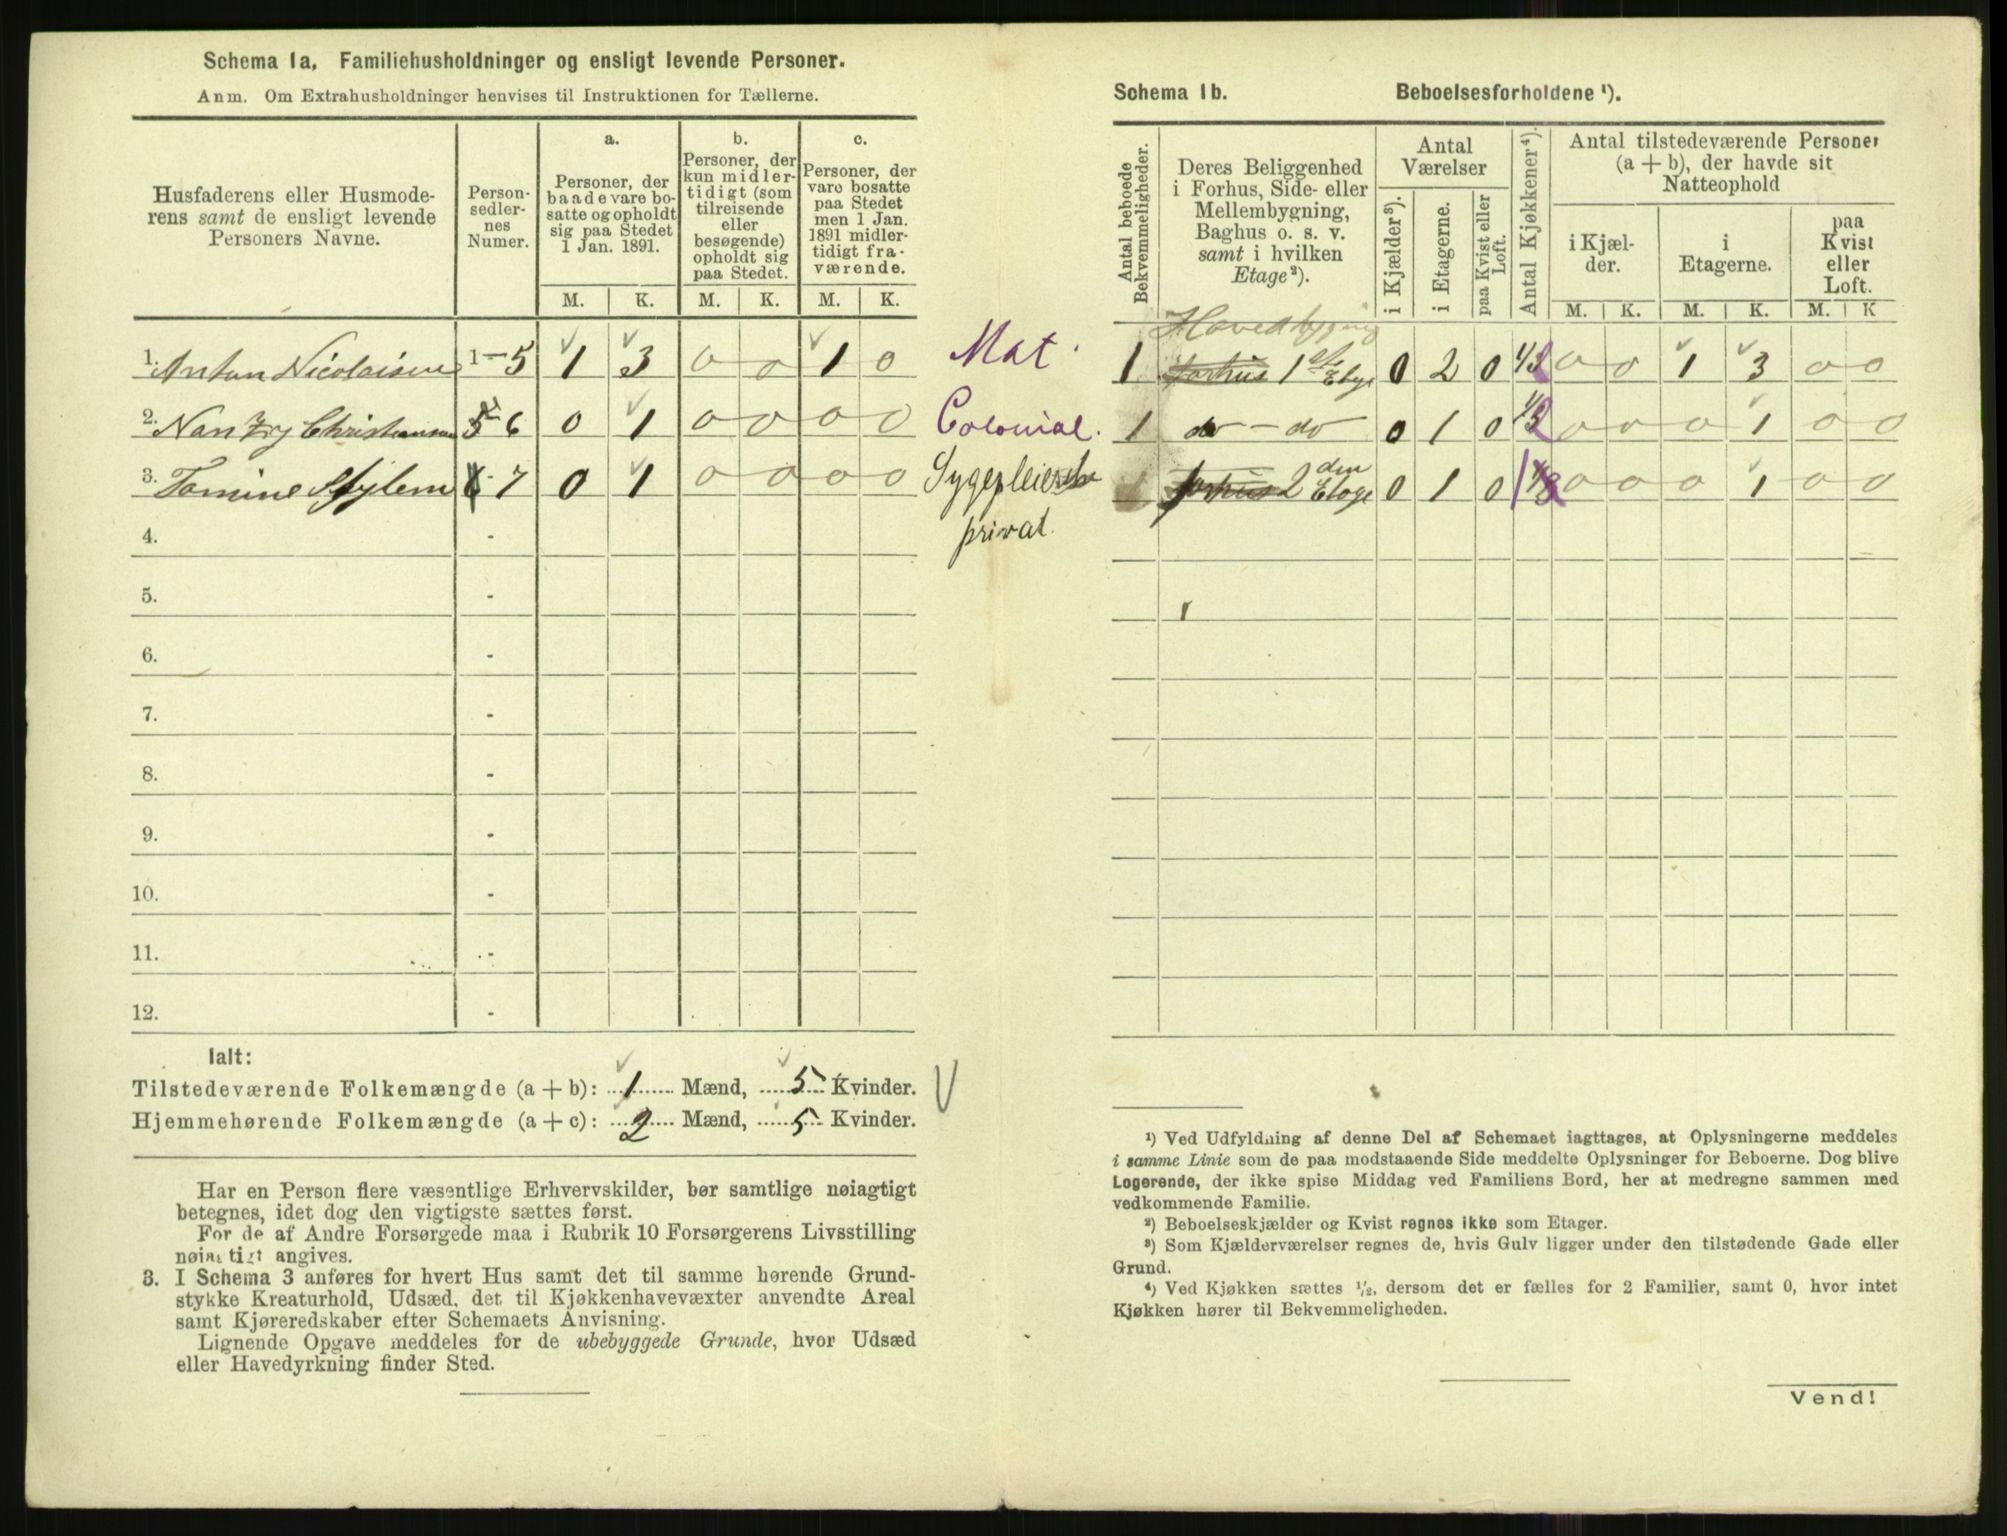 Schema 1a. Familiehusholdninger og ensligt levende Personer.
Anm. Om Extrahusholdninger henvises til Instruktionen for Tællerne.
Husfaderens eller Husmode-
rens samt de ensligt levende
Personers Navne.
Person-
sedler-
nes
Numer.
a.
Personer, der
baade vare bo-
satte og opholdt
sig paa Stedet
1 Jan. 1891.
b.
Personer, der
kun midler-
tidigt (som
tilreisende
eller
besøgende)
opholdt sig
paa Stedet.
c.
Personer, der
vare bosatte
paa Stedet
men 1 Jan.
1891 midler-
tidigt fra-
værende.
M. K. M. K. M. K.
1. Anton Nicolaisen 1-5 1 3 0 0 1 0 Mat.
2. Christensen 6 0 1 0 0 0 0 Colonial.
3. Tomine 7 0 1 0 0 0 0 Sygepleierske
privat.
4. -
5. -
6. -
7. -
8. -
9. -
10. -
11. -
12. -
Ialt:
Tilstedeværende Folkemængde (a + b): 1 Mænd, 5 Kvinder.
Hjemmehørende Folkemængde (a + c): 2 Mænd, 5 Kvinder.
Har en Person flere væsentlige Erhvervskilder, bør samtlige nøiagtigt
betegnes, idet dog den vigtigste sættes først.
For de af Andre Forsørgede maa i Rubrik 10 Forsørgerens Livsstilling
nøiagtigt angives.
3. I Schema 3 anføres for hvert Hus samt det til samme hørende Grund-
stykke Kreaturhold, Udsæd, det til Kjøkkenhavevæxter anvendte Areal
samt Kjøreredskaber efter Schemaets Anvisning.
Lignende Opgave meddeles for de ubebyggede Grunde, hvor Udsæd
eller Havedyrkning finder Sted.
Schema 1b. Beboelsesforholdene ¹).
Antal beboede
Bekvemmeligheder.
Deres Beliggenhed
i Forhus, Side- eller
Mellembygning,
Baghus o. s. v.
samt i hvilken
Etage²).
Antal
Værelser
i Kjælder³).
i Etagerne.
paa Kvist eller
Loft.
Antal Kjøkkener⁴).
Antal tilstedeværende Personer
(a + b), der havde sit
Natteophold
i Kjæl-
der.
i
Etagerne.
paa
Kvist
eller
Loft.
M. K. M. K. M. K
Hovedbygning
1 Forhus 1ste Etage 0 2 0 0 0 1 3 0 0
1 do - do 0 1 0 0 0 0 1 0 0
1 Forhus 2den Etage 0 1 0 0 0 0 1 0 0
¹) Ved Udfyldning af denne Del af Schemaet iagttages, at Oplysningerne meddeles
i samme Linie som de paa modstaaende Side meddelte Oplysninger for Beboerne. Dog blive
Logerende, der ikke spise Middag ved Familiens Bord, her at medregne sammen med
vedkommende Familie.
²) Beboelseskjælder og Kvist regnes ikke som Etager.
³) Som Kjælderværelser regnes de, hvis Gulv ligger under den tilstødende Gade eller
Grund.
⁴) Ved Kjøkken sættes ½, dersom det er fælles for 2 Familier, samt 0, hvor intet
Kjøkken hører til Bekvemmeligheden.
Vend!